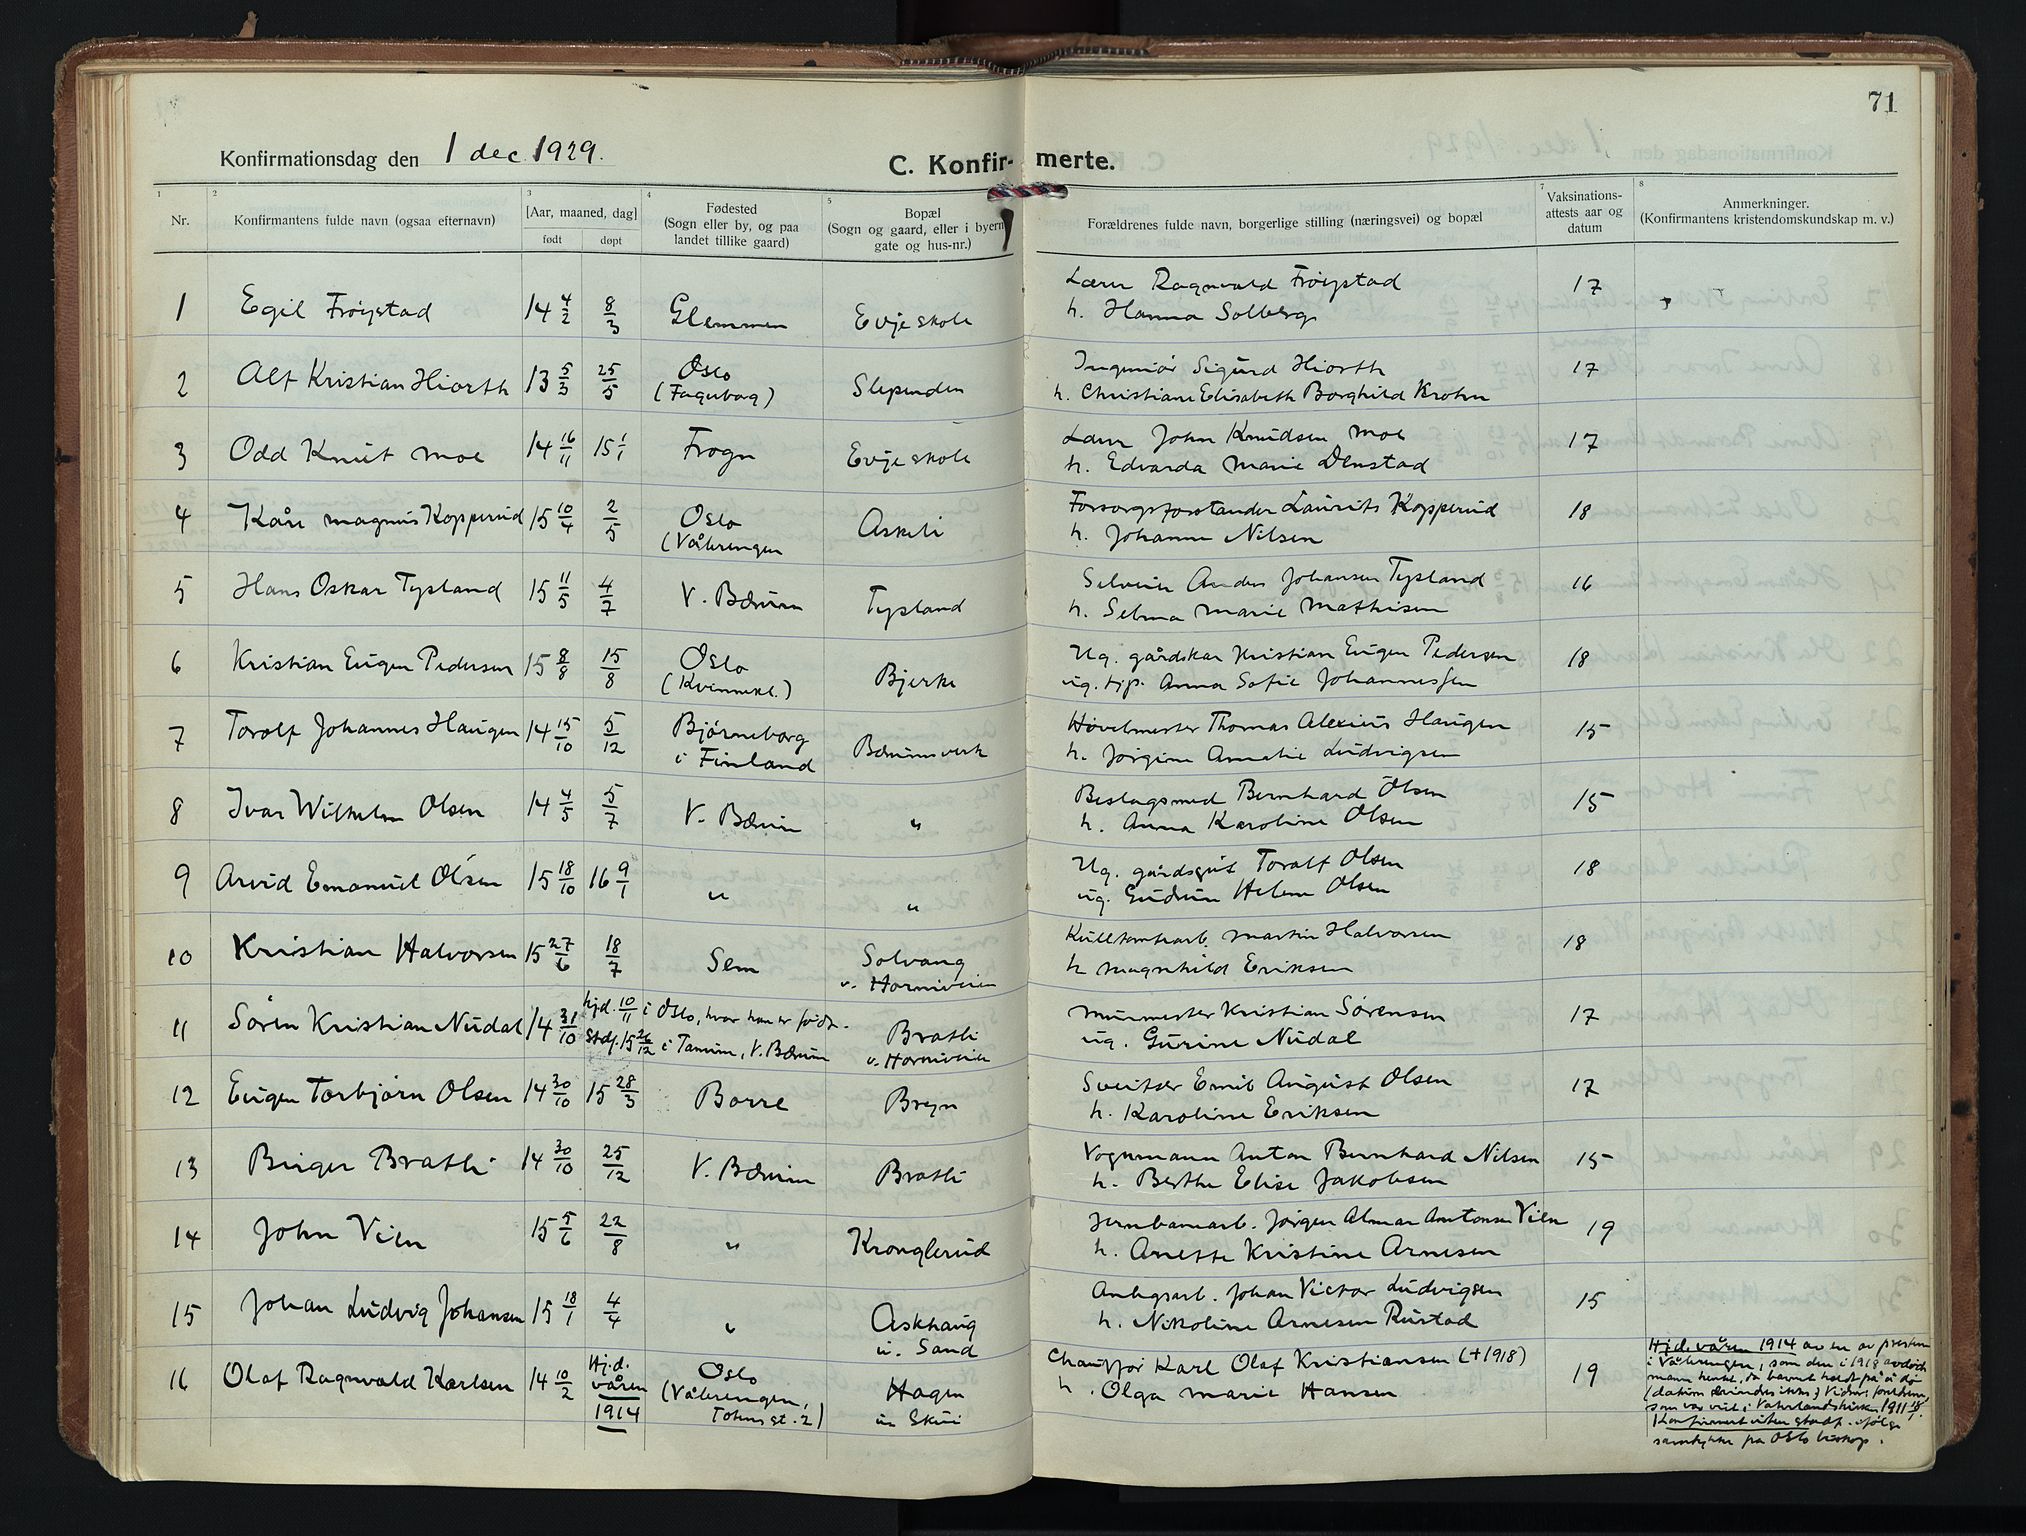 71
Konfirmationsdag den 1 dec. 1929.
C. Konfir- merte.
1 2 3 4 5 7 8
Nr. Konfirmantens fulde navn (ogsaa efternavn) [Aar, maaned, dag] født døpt Fødested (Sogn eller by, og paa landet tillike gaard) Bopæl (Sogn og gaard, eller i byern gate og hus-nr.) Forældrenes fulde navn, borgerlige stilling (næringsvei) og bopæl Vaksinations-attests aar og datum Anmerkninger. (Konfirmantens kristendomskundskap m. v.)
1 Egil Frøystad 14 4/2 8/3 Glemmen Evje skole Lærer Ragnvald Frøystad 17
h. Hanna Solberg
2 Alf Kristian Hiorth 13 5/3 25/5 Oslo (Fagerborg) Slependen Ingeniør Sigurd Hiorth 17
h. Christiane Elisabeth Borghild Krohn
3 Odd Knut Moe 14 16/11 15 1/1 Frogn Evje skole Lærer John Knudsen Moe 17
h. Edvarda Marie Denstad
4 Kåre Magnus Kopperud 15 10/4 2/5 Oslo (Vålerengen Askeli Forsorgsforstander Laurits Kopperud 18
h. Johanne Nilsen
5 Hans Oskar Tysland 15 11/5 4/7 V. Bærum Tysland Selveier Anders Johansen Tysland 16
h. Selma Marie Mathisen
6 Kristian Eugen Pedersen 15 8/8 15/8 Oslo (Kvinnekl.) Bjerke Ug. gårdskar Kristian Eugen Pedersen 18
ug. tjp. Anna Sofie Johannessen
7 Toralf Johannes Haugen 14 15/10 5/12 Bjørneborg i Finland Bærumsverk Høvelmester Thomas Alexius Haugen 15
h. Jørgine Amalie Ludvigsen
8 Ivar Wilhelm Olsen 14 4/5 5/7 V. Bærum " Beslagsmed Bernhard Olsen 15
h. Anna Karoline Olsen
9 Arvid Emanuel Olsen 15 18/10 16 9/1 " " Ug. gårdsgut Toralf Olsen 18
ug. Gudrun Helene Olsen
10 Kristian Halvorsen 15 27/6 18/7 Sem Solvang v. Horniveien Kulltomtarb. Martin Halvorsen 18
h Magnhild Eriksen
11 Søren Kristian Nudal 14 31/10 hjd. 10/11 i Oslo, hvor han er født. Bratli v. Horniveien Murmester Kristian Sørensen 17
Stdf. 15 26/12 i Tanum, V. Bærum ug. Gurine Nudal
12 Eugen Torbjørn Olsen 14 30/10 15 28/3 Borre Bryn Sveitser Emil August Olsen 17
h. Karoline Eriksen
13 Birger Bratli 14 30/10 25/12 V. Bærum Bratli Vognmann Anton Bernhard Nilsen 15
h. Berthe Elise Jakobsen
14 John Vien 15 5/6 22/8 " Kronglerud Jernbanearb. Jørgen Almar Antonsen Vien 19
h. Anette Kristine Arnesen
15 Johan Ludvig Johansen 15 18/1 4/4 " Askhaug u. Sand Anlegsarb. Johan Victor Ludvigsen 15
h. Nikoline Arnesen Rustad
16 Olaf Ragnvald Karlsen 14 10/2 Hj.d. våren 1914 Oslo (Vålerengen, Tokns gt. 2) Hagen u. Skui Chauffør Karl Olaf Kristiansen (+1918) 19
h. Olga Marie Hansen
Hj.d. våren 1914 av en av prestene
i Vålerengen, som den i 1918 avdøde
mann hentet, da barnet holdt på å dø
(datum erindres ikke) Vidner foreldrene,
som var viet i Vaterlandskirken 1911
Konfirmert uten stadf. ifølge
samtykke fra Oslo biskop.